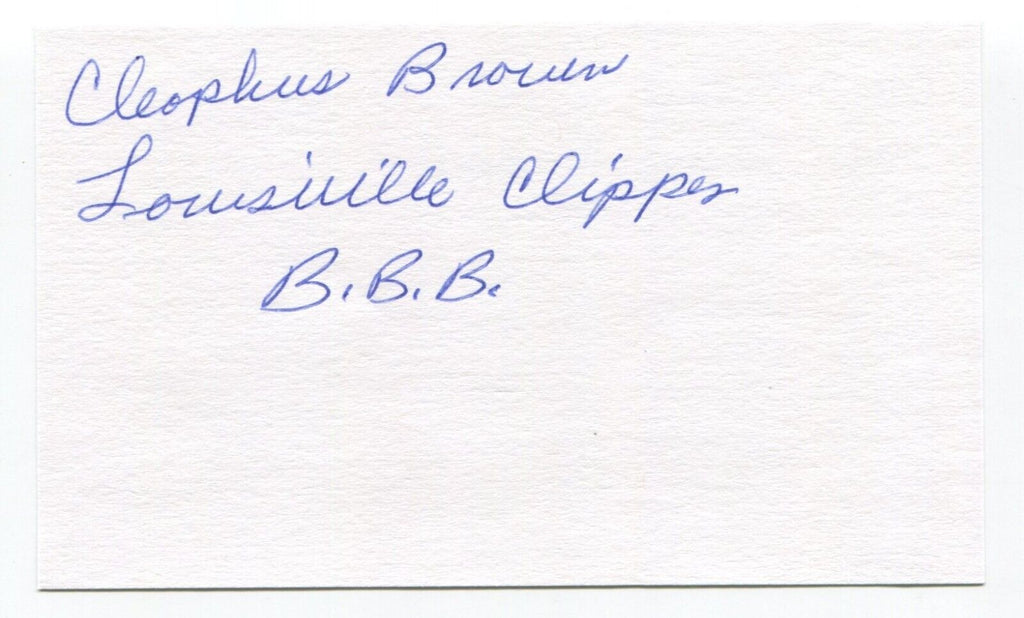 Cleophus Brown
Louisville Clippers
B.B.B.